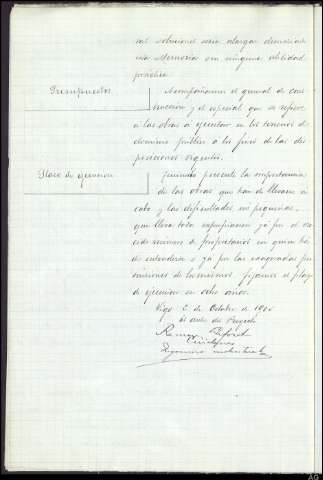 tal volumen sería alargar demasiado
esta Memoria sin ninguna utilidad
práctica.
Presupuestos
Acompañamos el general de cons-
trucción y el especial que se refiere
a las obras a ejecutar en los terrenos de
dominio público a los fines de las dis-
posiciones vigentes.
Plazo de ejecución
Teniendo presente la importancia
de las obras que han de llevarse a
cabo y las dificultades, no pequeñas,
que lleva toda expropiación ya por el
número de propietarios con quien hay
de entenderse o ya por las exageradas pre-
tensiones de los mismos fijamos el plazo
de ejecución en ocho años.
Vigo 2 de Octubre de 1900
El autor del Proyecto
Ramon
Ingeniero industrial
AG